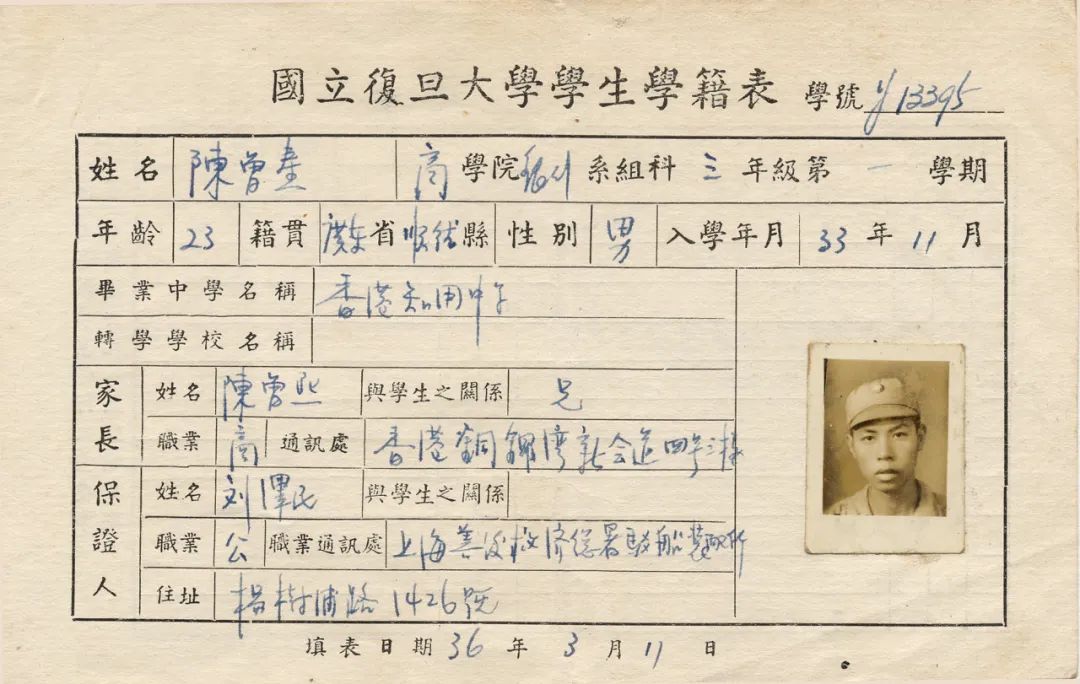 國立復旦大學學生學籍表 學號 y13395
姓名 陳曾燾 商 學院 銀行 系組科 三 年級第 一 學期
年齡 23 籍貫 廣东 省 順德 縣 性別 男 入學年月 33 年 11 月
畢業中學名稱 香港知用中学
轉學學校名稱
家長 姓名 陳曾熙 與學生之關係 兄
職業 商 通訊處 香港銅鑼灣新会道四号三樓
保證人 姓名 刘澤民 與學生之關係
職業 公 職業通訊處 上海善後救济总署駁船裝配所
住址 楊树浦路1426號
填表日期 36 年 3 月 11 日